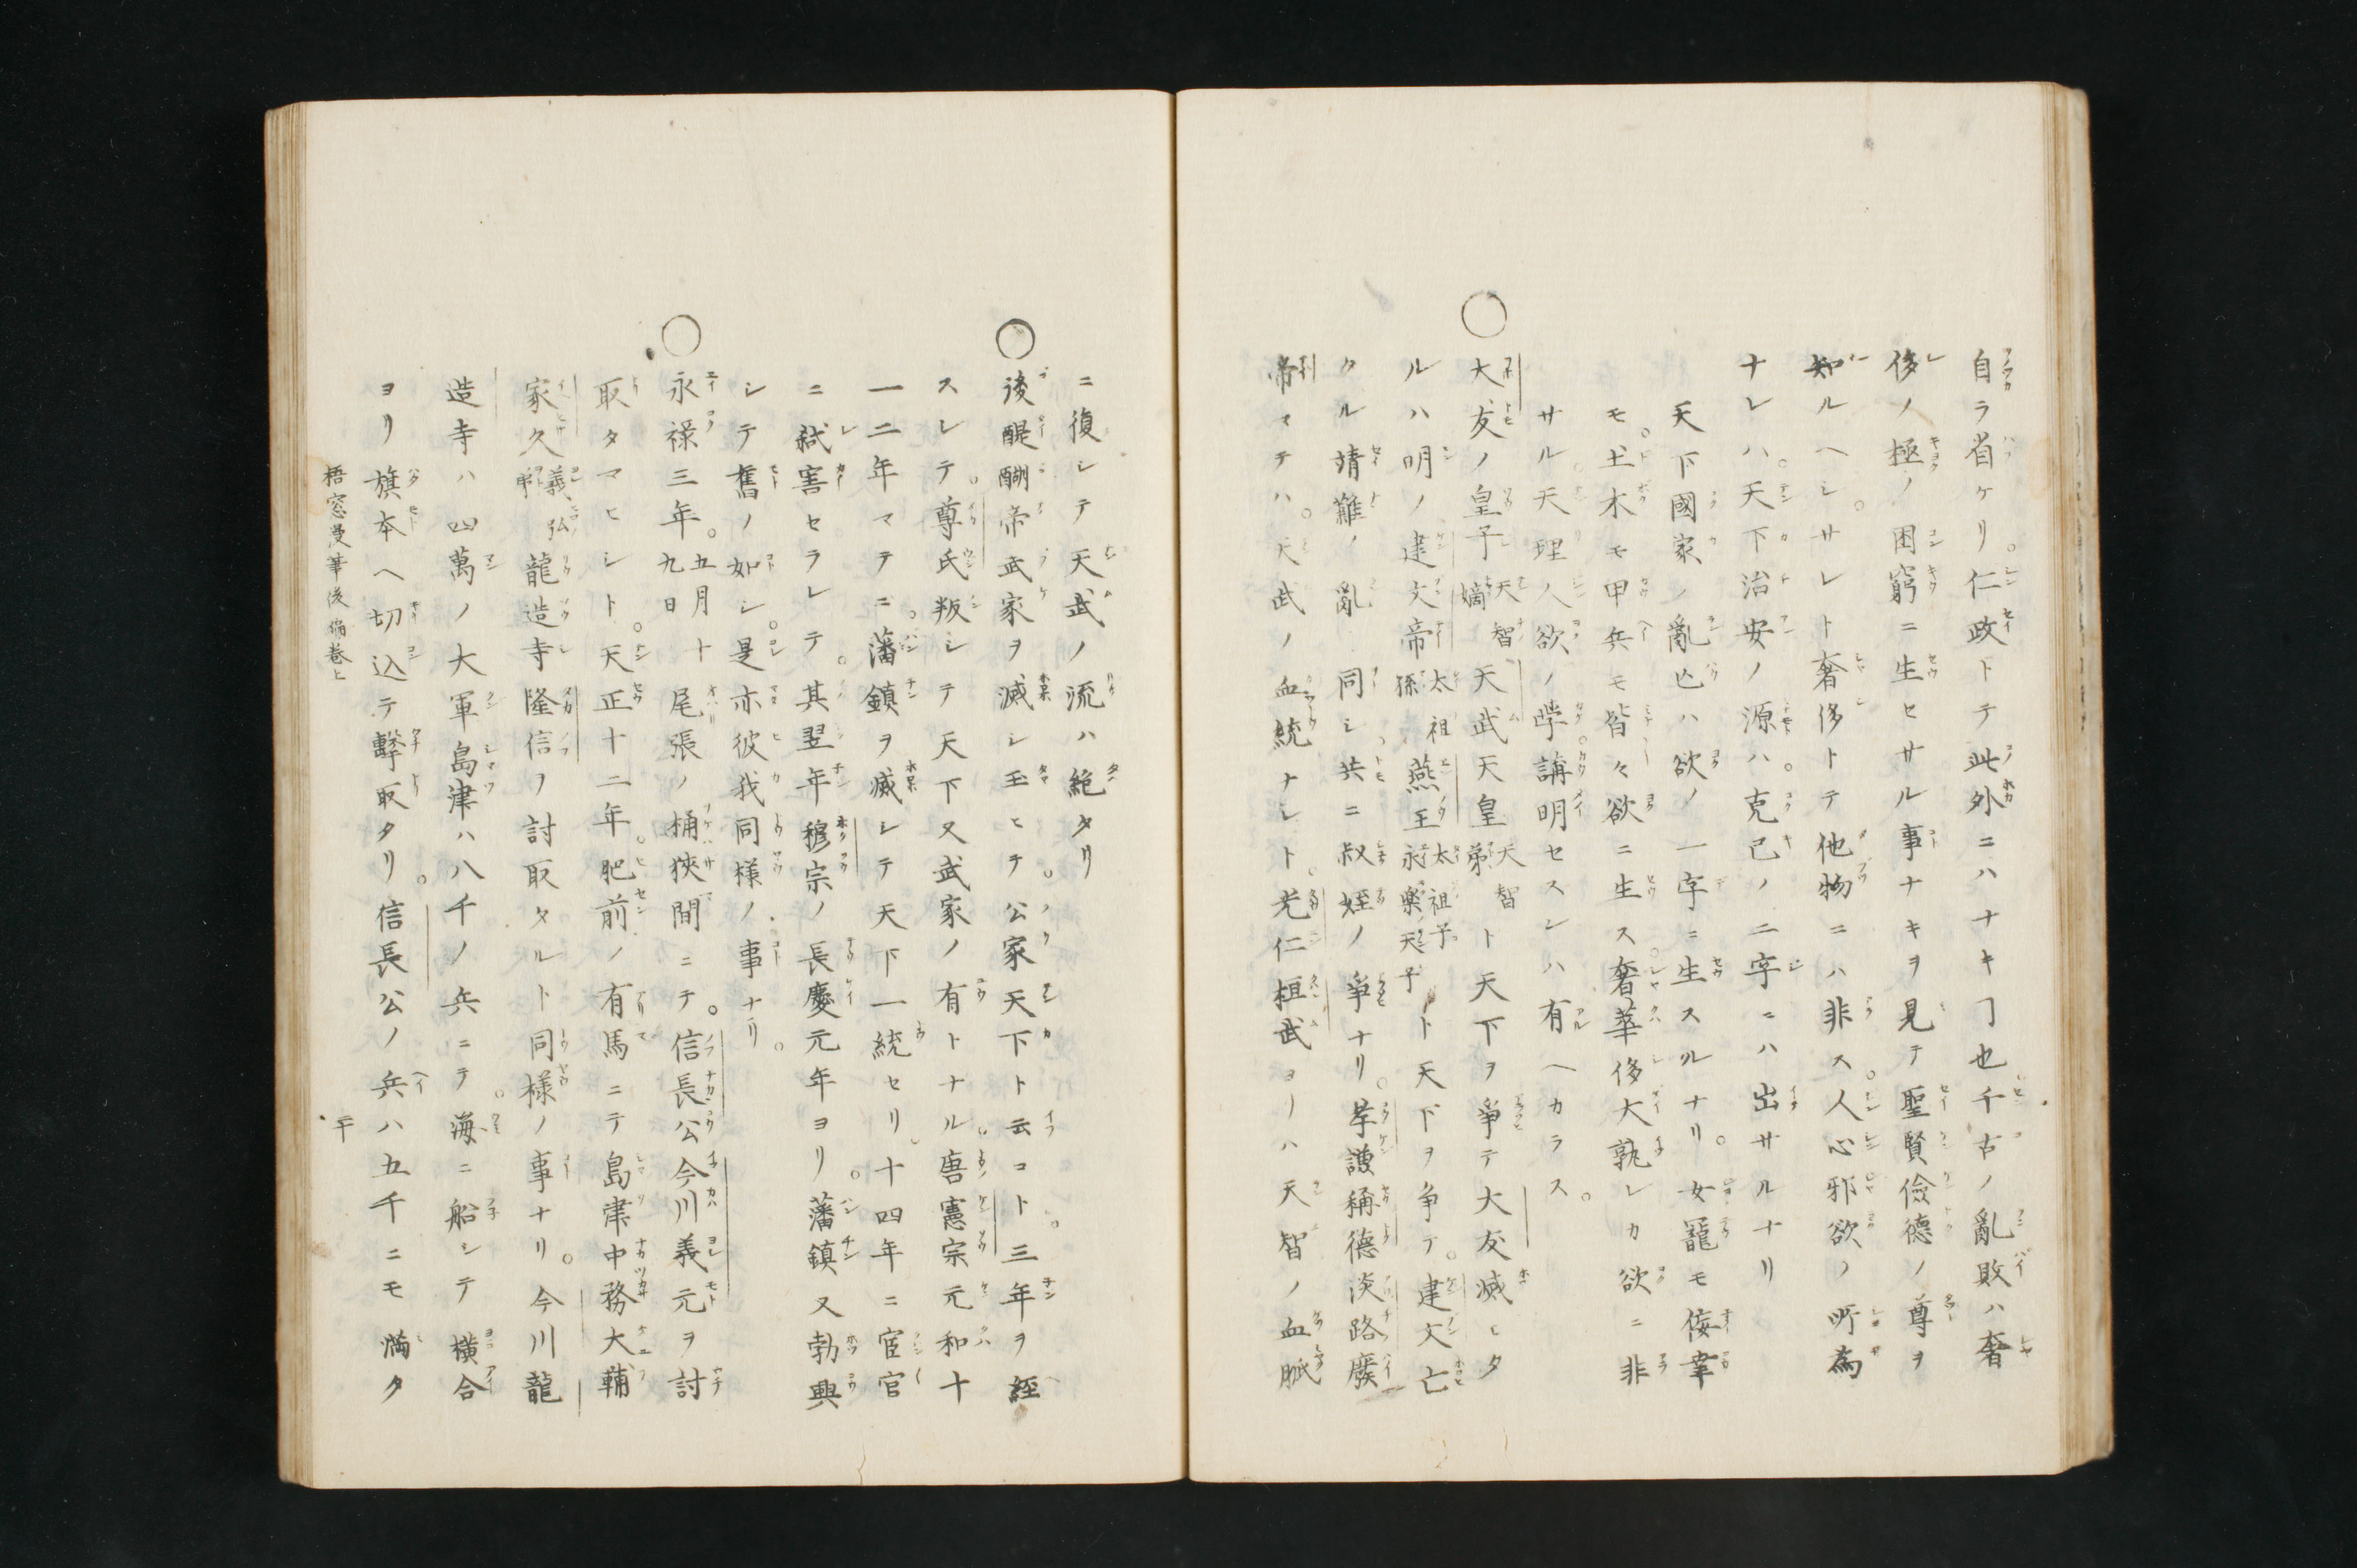 自ラ省ケリ。仁政トテ此外ニハナキヿ也。千古ノ亂敗ハ奢
侈ノ極ノ困窮ニ生セサル事ナキヲ見テ聖賢儉德ノ尊ヲ
知ルヘシ。サレト奢侈トテ他物ニハ非ス。人心邪欲ノ所為
ナレハ。天下治安ノ源ハ。克已ノ二字ニハ出サルナリ
天下國家ノ亂亡ハ欲ノ一字ニ生スルナリ。女寵モ倿幸
モ。土木モ甲兵モ皆々欲ニ生ス。奢華侈大孰レカ欲ニ非
サル。天理人欲ノ學。講明セスンハ有ヘカラス。
○大友ノ皇子天智嫡天武天皇天智弟ト天下ヲ爭テ大友滅ヒタ
ルハ明ノ建文帝太祖孫燕王太祖子永樂天子ト天下ヲ争テ。建文亡
クル靖難ノ亂同シ。共ニ叔姪ノ爭ナリ。孝謙稱德淡路廢
帝マテハ。天武ノ血統ナレト。光仁桓武ヨリハ天智ノ血脈
ニ復シテ天武ノ流ハ絶タリ
○後醍醐帝武家ヲ滅シ玉ヒテ。公家天下ト云コト。三年ヲ經
スレテ。尊氏叛シテ天下又武家ノ有トナル。唐憲宗元和十
一二年マテニ。藩鎮ヲ滅シテ天下一統セリ。十四年ニ宦官
ニ弑害セラレテ。其翌年穆宗ノ長慶元年ヨリ。藩鎮又勃興
シテ舊ノ如シ。是亦彼我同様ノ事ナリ。
○永禄三年。五月十九日尾張ノ桶狹間ニテ。信長公今川義元ヲ討
取タマヒシト。天正十二年。肥前ノ有馬ニテ島津中務大輔
家久義弘弟龍造寺隆信ヲ討取タルト同様ノ事ナリ。今川龍
造寺ハ四萬ノ大軍島津ハ八千ノ兵ニテ。海ニ船シテ橫合
ヨリ旗本ヘ切込テ擊取タリ。信長公ノ兵ハ五千ニモ満タ
梧窓漫筆後編卷上